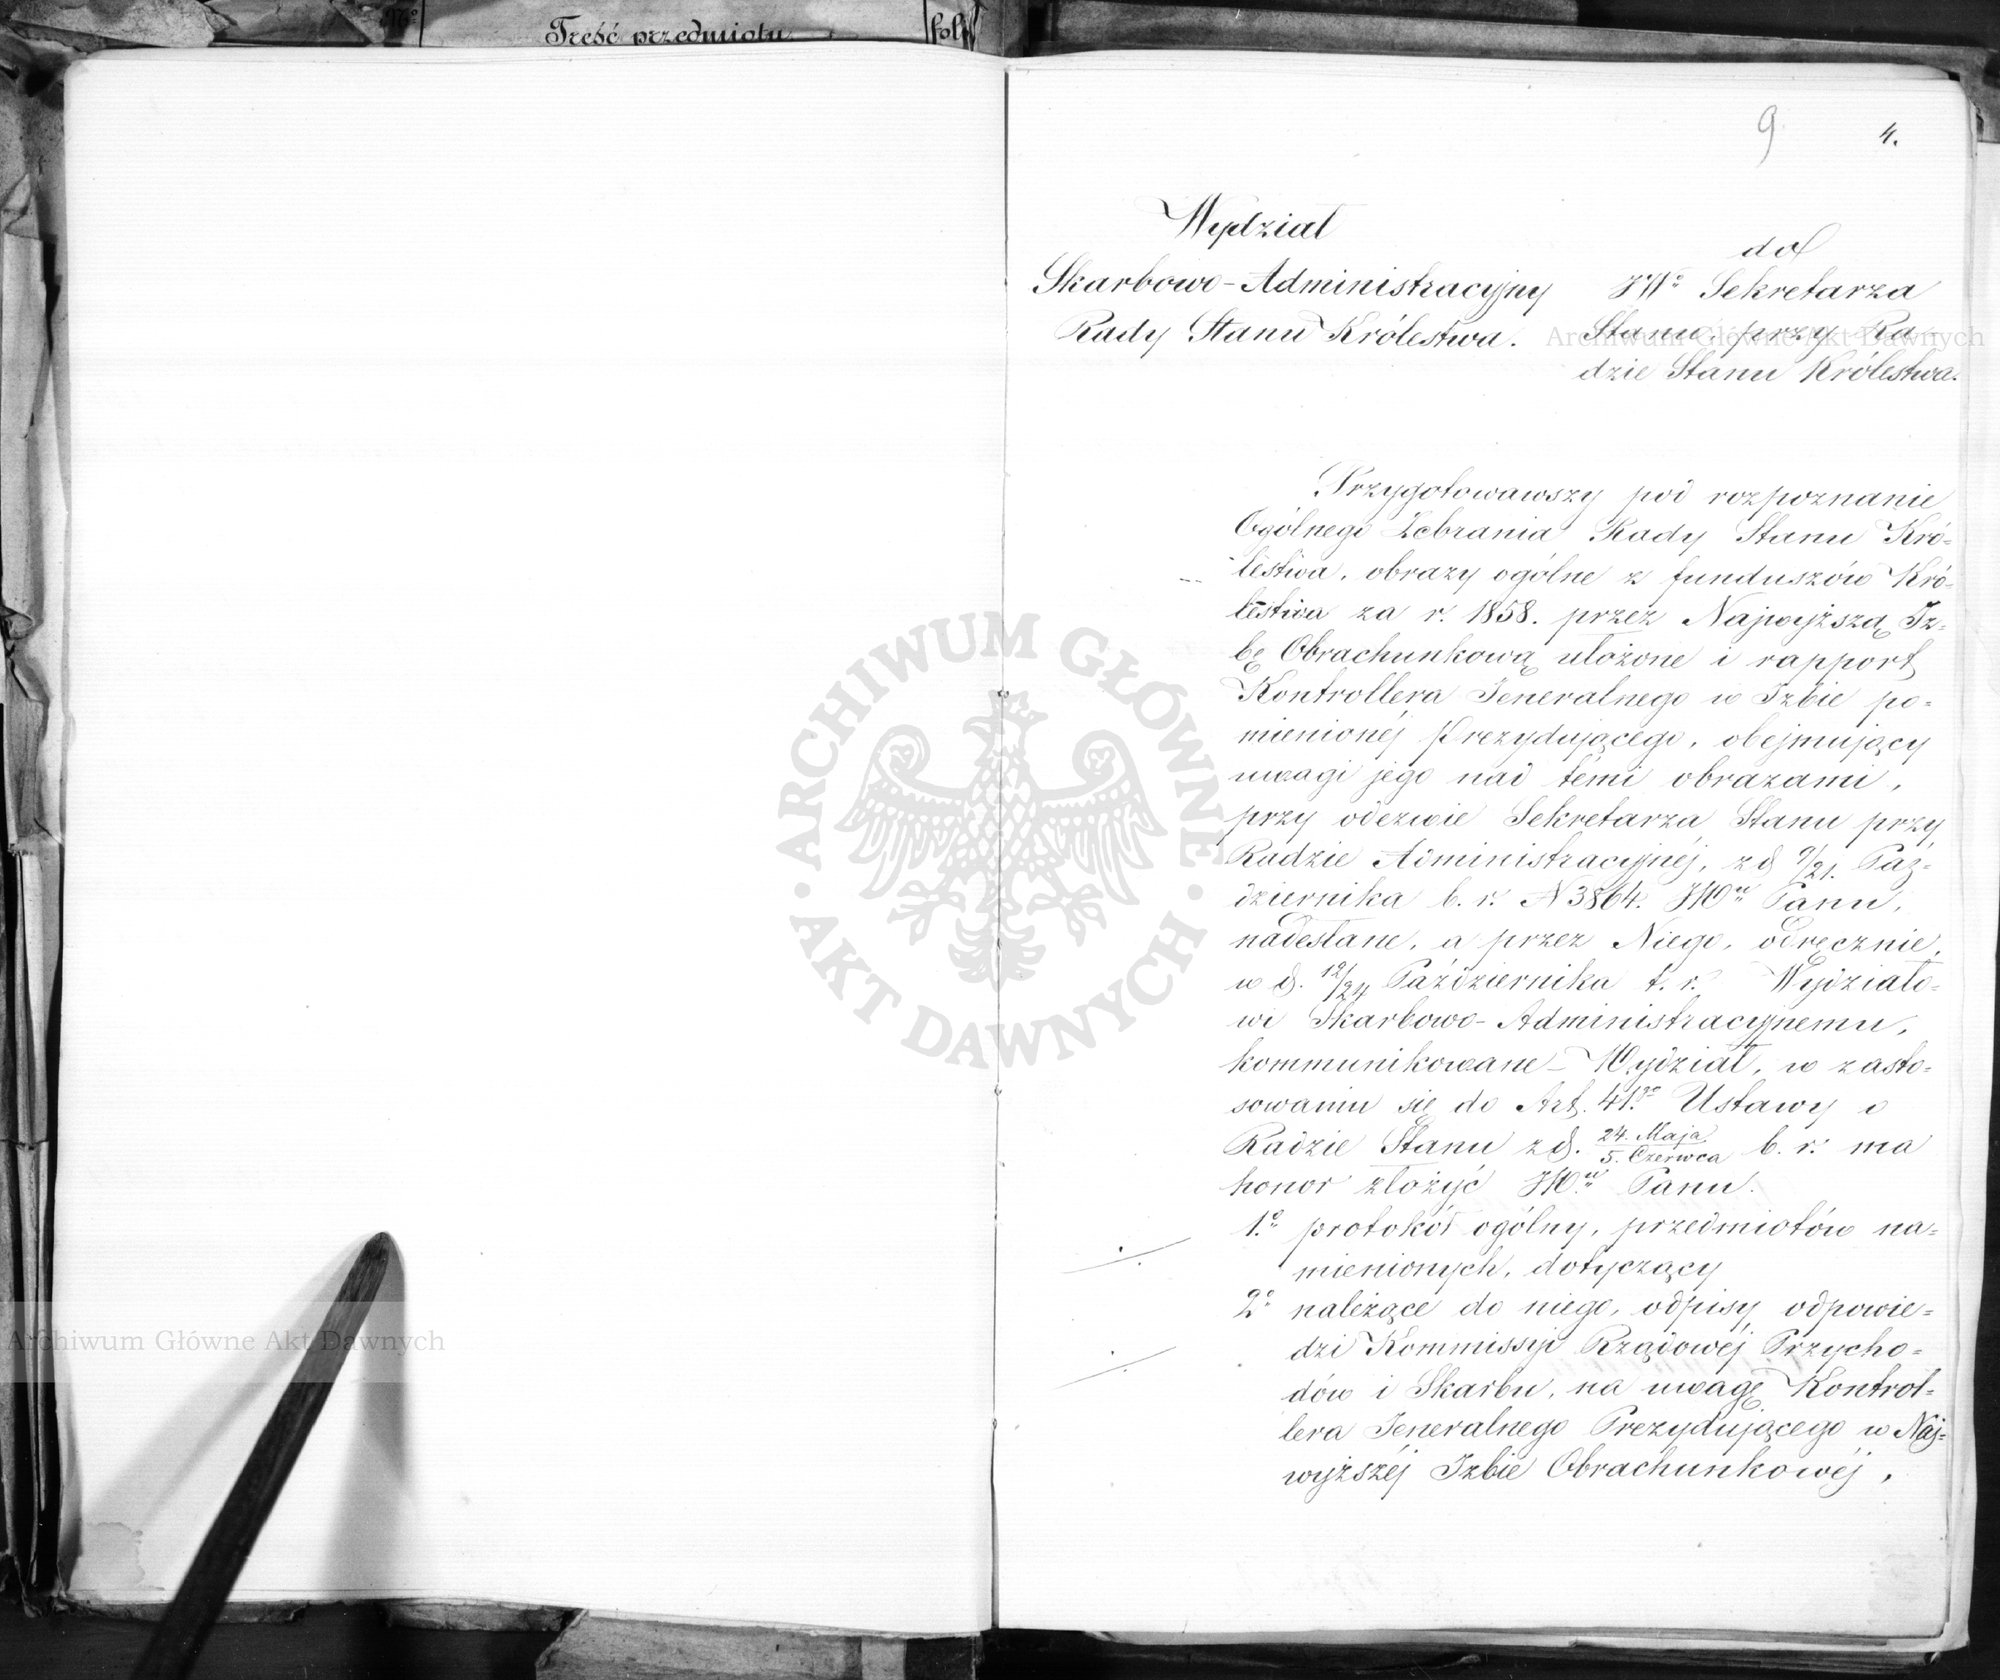 No
Treść przedmiotu
folio
9
4.
Wydział
Skarbowo-Administracyjny
Rady Stanu Królestwa.
do
JWo Sekretarza
Stanu przy Ra-
dzie Stanu Królestwa.
Przygotowawszy pod rozpoznanie
Ogólnego Zebrania Rady Stanu Kró-
lestwa, obrazy ogólne z funduszów Kró-
lestwa za r. 1858. przez Najwyższą Iz-
bę Obrachunkową ułożone i rapport
Kontrollera Jeneralnego w Izbie po-
mienionéj Prezydującego, obejmujący
uwagi jego nad témi obrazami,
przy odezwie Sekretarza Stanu przy
Radzie Administracyjnéj, z d. 9/21. Paź-
dziernika b. r. N 3864. JWu Panu,
nadesłane, a przez Niego, odręcznie,
w d. 12/24 Października t. r. Wydziało-
wi Skarbowo-Administracyjnemu,
kommunikowane – Wydział, w zasto-
sowaniu się do Art. 41.go Ustawy o
Radzie Stanu z d. 24. Maja/5. Czerwca b. r. ma
honor złożyć JWu Panu.
1.o protokół ogólny, przedmiotów na-
mienionych, dotyczący
2o należące do niego, odpisy odpowie-
dzi Kommissyi Rządowéj Przycho-
dów i Skarbu, na uwagę Kontrol-
lera Jeneralnego Prezydującego w Naj-
wyższéj Izbie Obrachunkowéj,
ARCHIWUM GŁÓWNE
AKT DAWNYCH
Archiwum Główne Akt Dawnych
Archiwum Główne Akt Dawnych